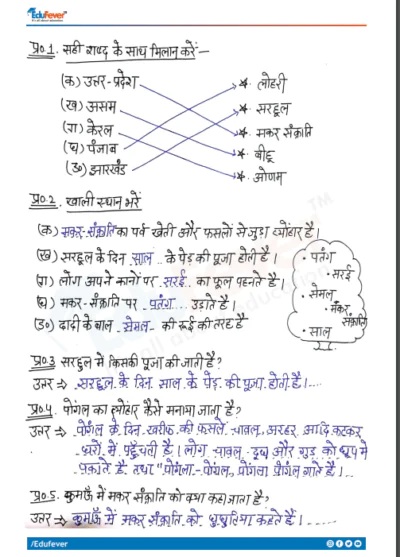 Edufever
प्र०1. सही शब्द के साथ मिलान करें:—
(क) उत्तर-प्रदेश * लोहरी
(ख) असम * सरहूल
(ग) केरल * मकर संक्राति
(घ) पंजाब * बीहू
(ङ) झारखंड * ओणम
प्र०2. खाली स्थान भरें
(क) मकर-संक्राति का पर्व खेती और फसलों से जुड़ा त्योंहार है।
(ख) सरहूल के दिन साल .. के पेड़ की पूजा होती है।
(ग) लोग अपने कानो पर .. सरई .. का फूल पहनते है।
(घ) मकर-संक्राति पर .. पतंग ... उड़ाते है।
(ङ) दादी के बाल .. सेमल .. की रूई की तरह है
• पतंग
• सरई
• सेमल
• मकर संक्राति
• साल
प्र०3 सरहूल में किसकी पूजा की जाती है?
उत्तर ⇒ सरहूल के दिन साल के पेड़ की पूजा होती है।....
प्र०4. पोंगल का त्योंहार कैसे मनाया जाता है?
उत्तर ⇒ पोंगल के दिन खरीफ की फसलें चावल, अरहर आदि कटकर
घरों में पहुँचती है। लोग चावल, दूध और गुड़ को धूप में
पकाते है तथा "पोंगला-पोंगल, पोंगला पोंगल गाते है।...
प्र०5. कुमाऊँ में मकर संक्राति को क्या कहा जाता है?
उत्तर ⇒ कुमाऊँ में मकर संक्राति को घुघुतिया कहते हैं।
/Edufever